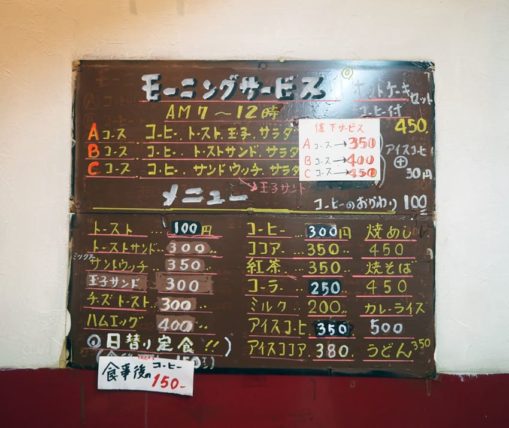 モーニングサービス
AM 7～12時
Aコース コーヒー. トースト. 玉子. サラダ
Bコース コーヒー. トーストサンド. サラダ
Cコース コーヒー. サンドウッチ. サラダ
玉子サンド
値下サービス
Aコース→350
Bコース→400
Cコース→450
ホットケーキセット
コーヒー付
450.
アイスコーヒー
+
30円
メニュー
コーヒーのおかわり 100
トースト… 100円
トーストサンド… 300…
ミックス
サンドウッチ… 350…
玉子サンド 300
チーズトースト… 300…
ハムエッグ 400…
◎日替り定食!!)
コーヒー… 300円
ココア… 350…
紅茶… 350…
コーラ… 250
ミルク… 200…
アイスコーヒー 350
アイスココア… 380.
焼めし
450
焼そば
450
カレーライス
500
うどん 350
食事後の コーヒー 150-